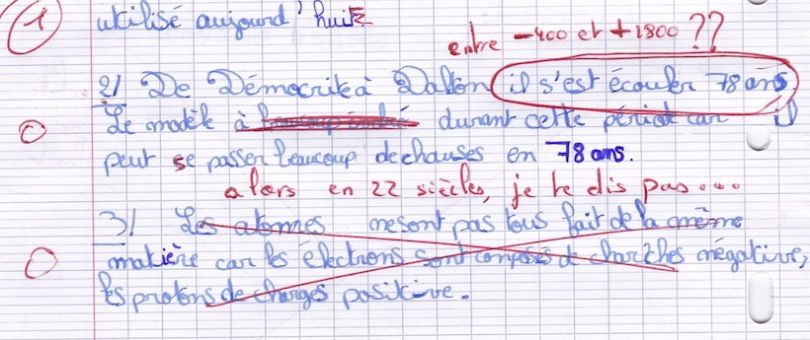 1
utilisé aujourd'huit
entre -400 et +1800 ??
2/ De Démocrite à Dalton il s'est écouler 78 ans
0 Le modèle à durant cette périod car il
peut se passer beaucoup de chauses en 78 ans.
alors en 22 siècles, je te dis pas...
3/ Les atomes ne sont pas tous fait de la même
0 matière car les électrons sont composés de charches négative,
les protons de charges positive.